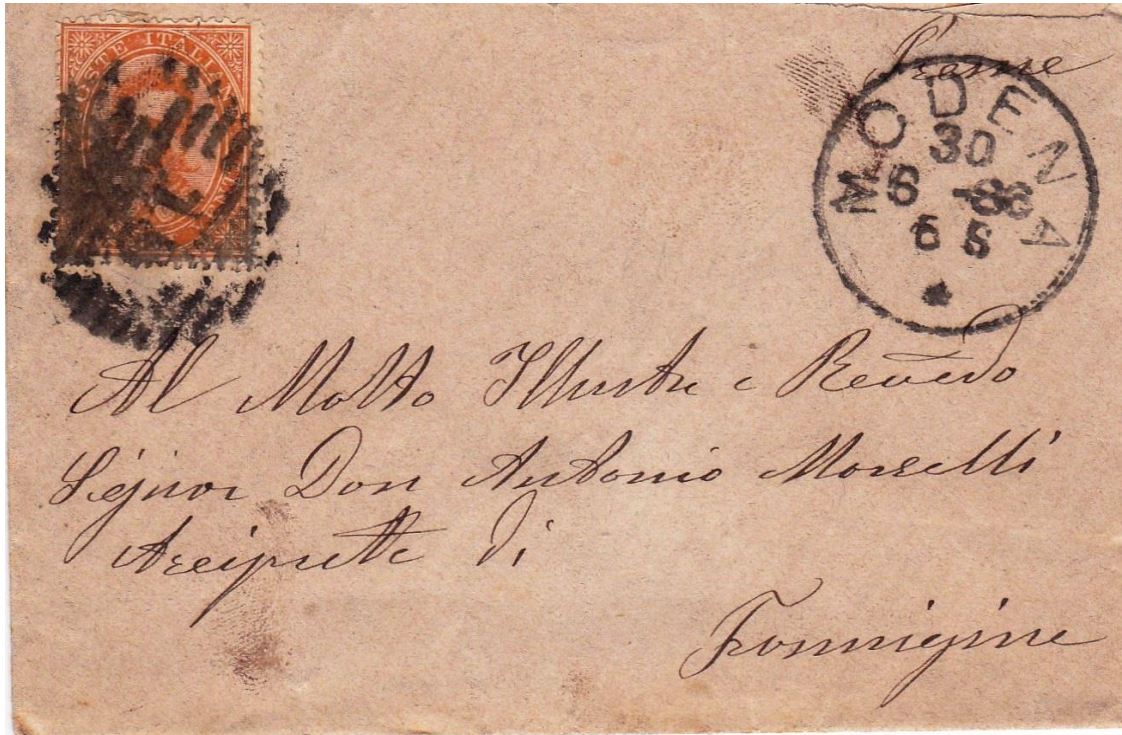 POSTE ITALIAN
Preme
MODENA
30
6 -86
6 S
Al Molto Illustre e Revedo
Signor Don Antonio Morselli
Arciprete di
Formigine